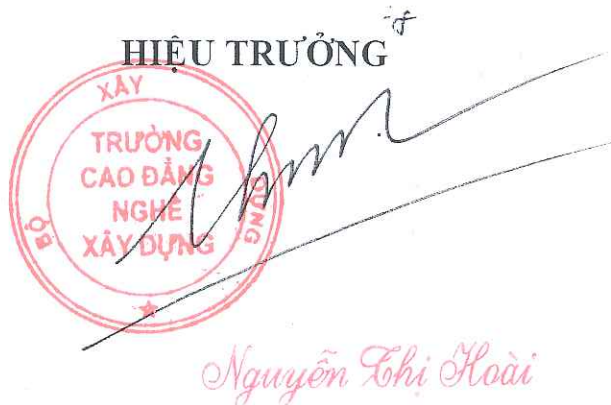 HIỆU TRƯỞNG
BỘ XÂY DỰNG
TRƯỜNG
CAO ĐẲNG
NGHỀ
XÂY DỰNG
Nguyễn Thị Hoài